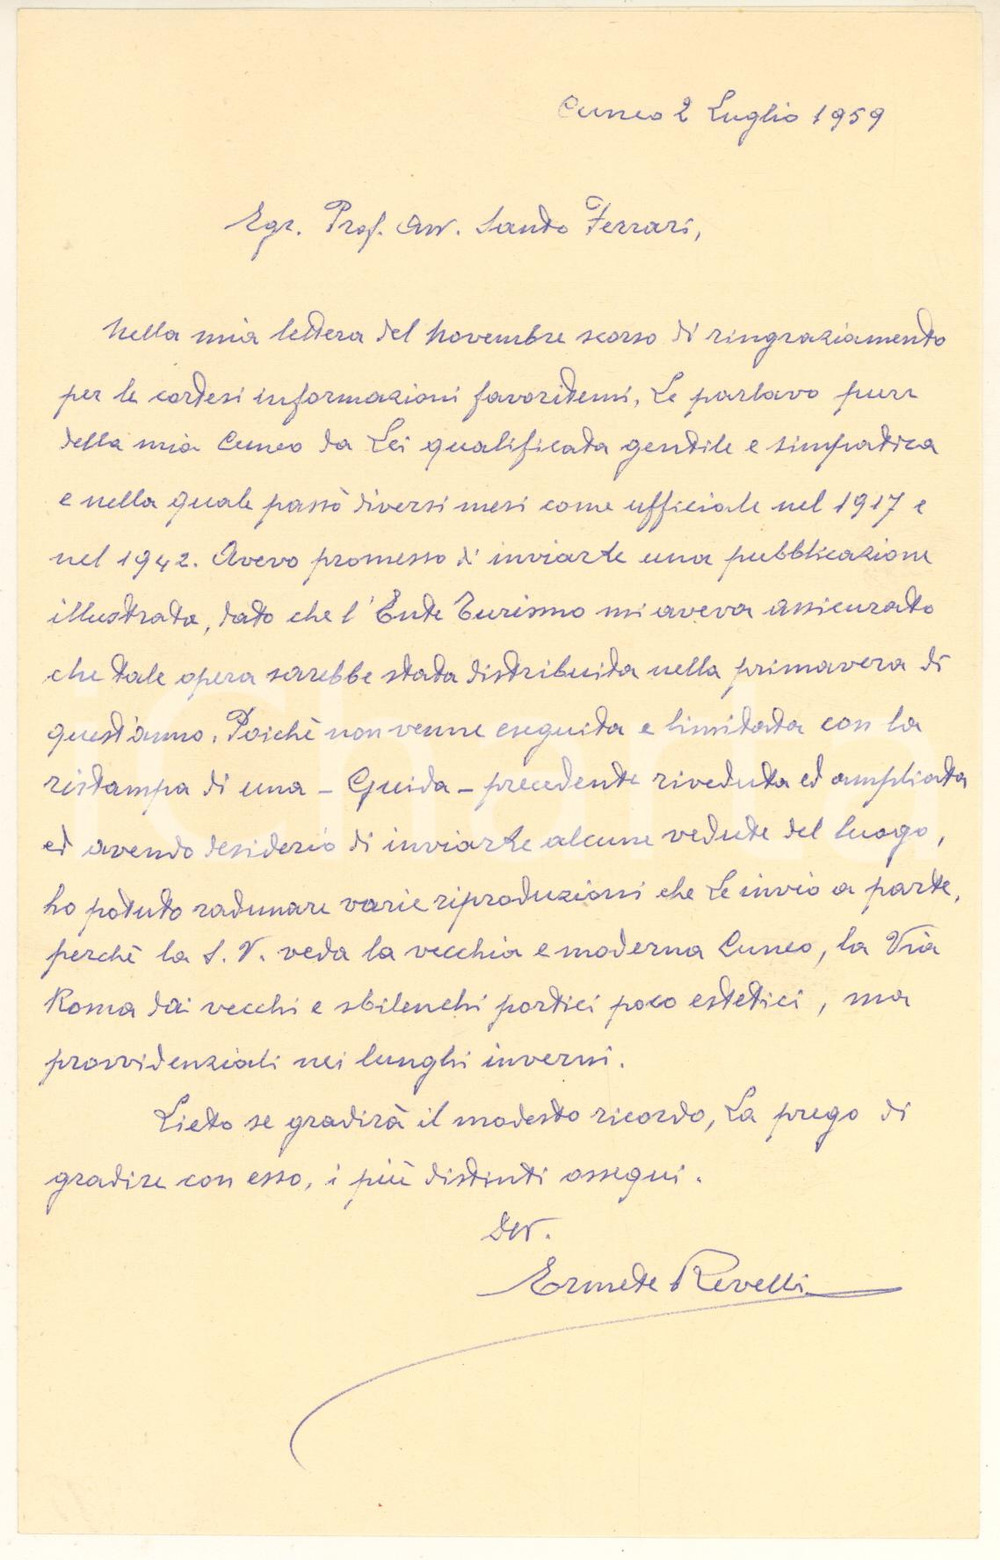 Cuneo 2 Luglio 1959
Egr. Prof. Avv. Santo Ferrari,
Nella mia lettera del Novembre scorso di ringraziamento
per le cortesi informazioni favoritemi, Le parlavo pure
della mia Cuneo da Lei qualificata gentile e simpatica
e nella quale passò diversi mesi come ufficiale nel 1917 e
nel 1942. Avevo promesso di inviarle una pubblicazione
illustrata, dato che l'Ente Turismo mi aveva assicurato
che tale opera sarebbe stata distribuita nella primavera di
quest'anno. Poichè non venne eseguita e limitata con la
ristampa di una - Guida - precedente riveduta ed ampliata
ed avendo desiderio di inviarLe alcune vedute del luogo,
ho potuto radunare varie riproduzioni che Le invio a parte,
perchè la S. V. veda la vecchia e moderna Cuneo, la Via
Roma dai vecchi e sbilenchi portici poco estetici, ma
provvidenziali nei lunghi inverni.
Lieto se gradirà il modesto ricordo, La prego di
gradire con esso, i più distinti ossequi.
Dev.
Ermete Revelli